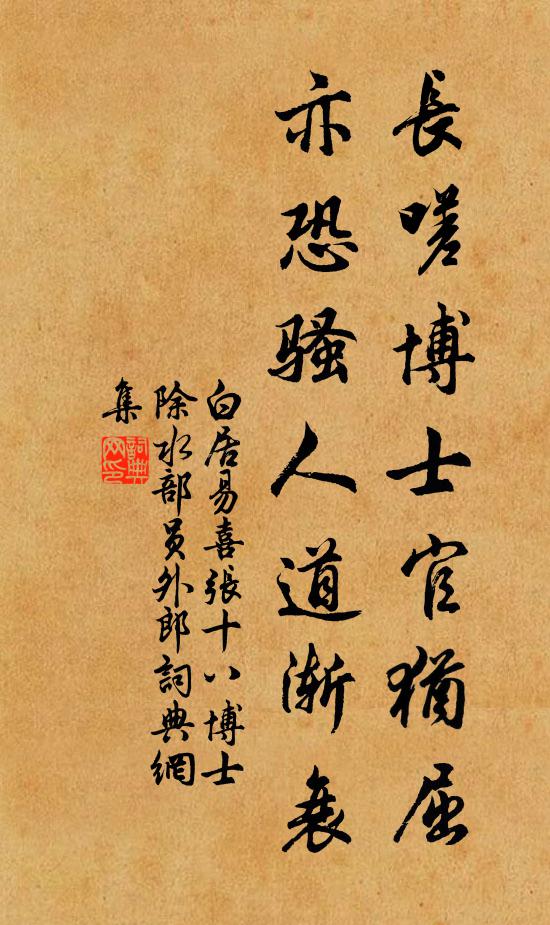 長嗟博士官猶屈
亦恐騷人道漸衰
白居易喜張十八博士
除水部員外郎詞典網
集
詞典網印